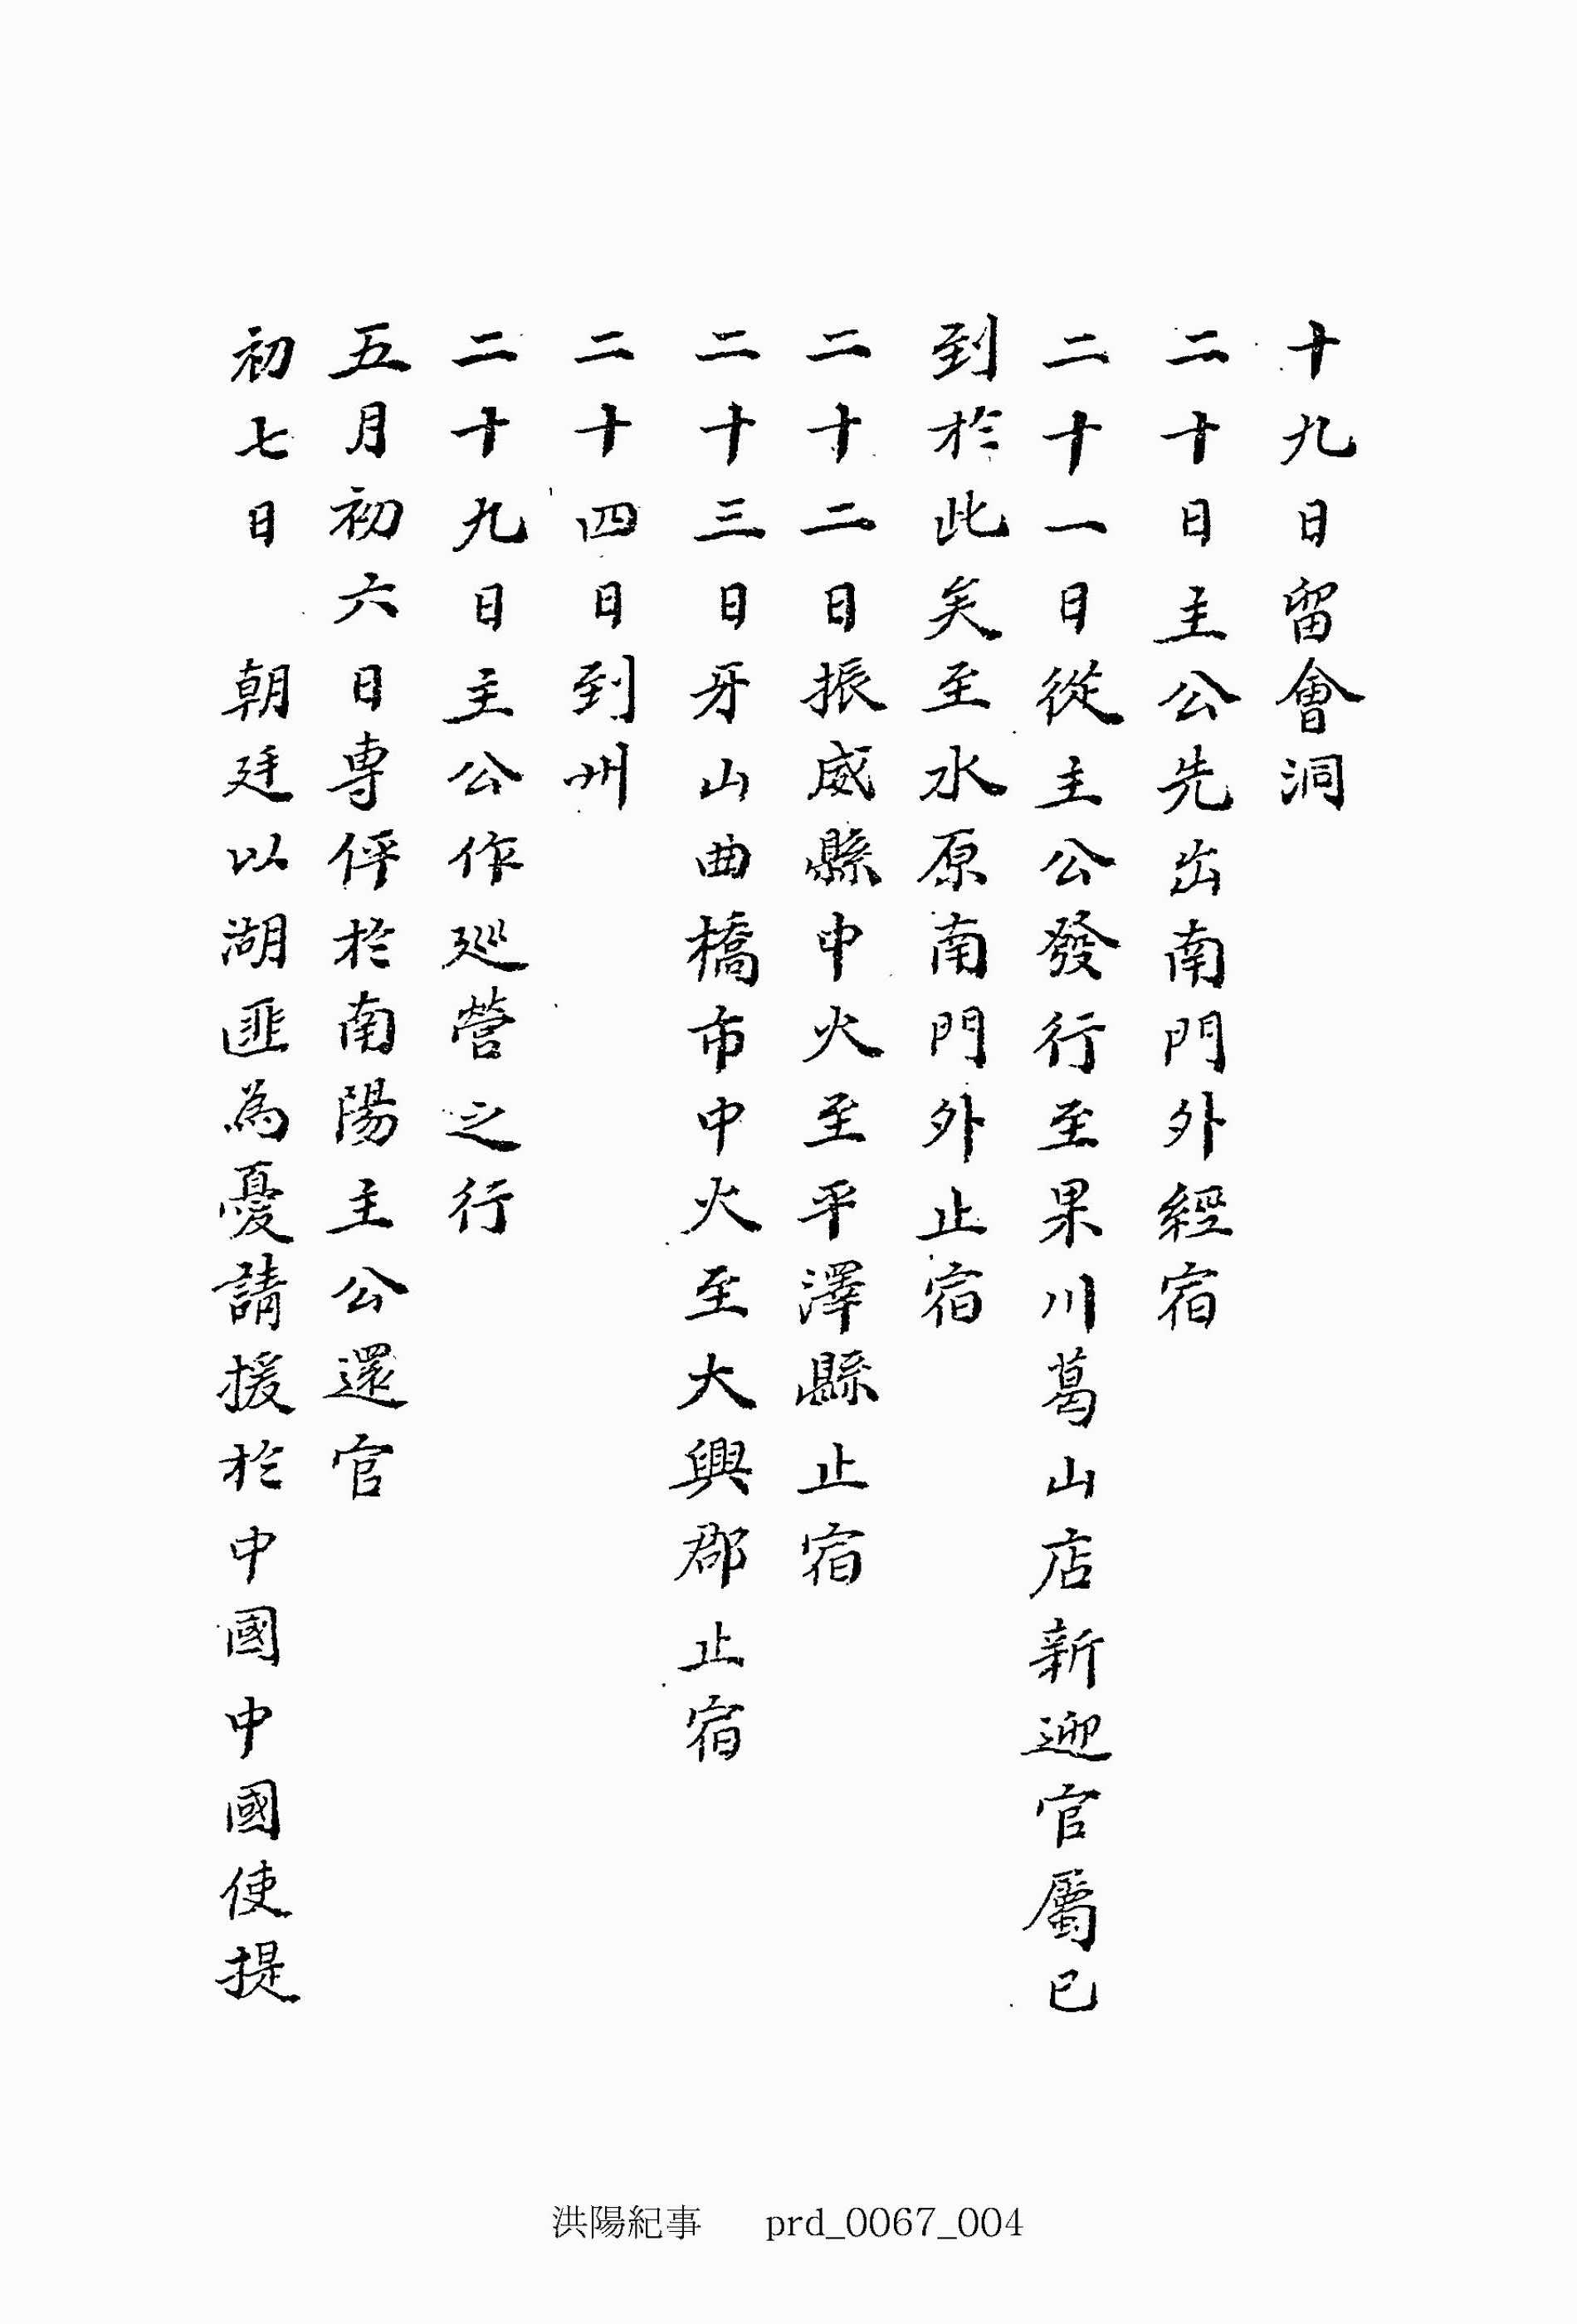 十九日留會洞
二十日主公先出南門外經宿
二十一日從主公發行至果川葛山店新迎官屬已
到於此矣至水原南門外止宿
二十二日振威縣中火至平澤縣止宿
二十三日牙山曲橋市中火至大興郡止宿
二十四日到州
二十九日主公作巡營之行
五月初六日專伻於南陽主公還官
初七日 朝廷以湖匪為憂請援於中國中國使提
洪陽紀事 prd_0067_004